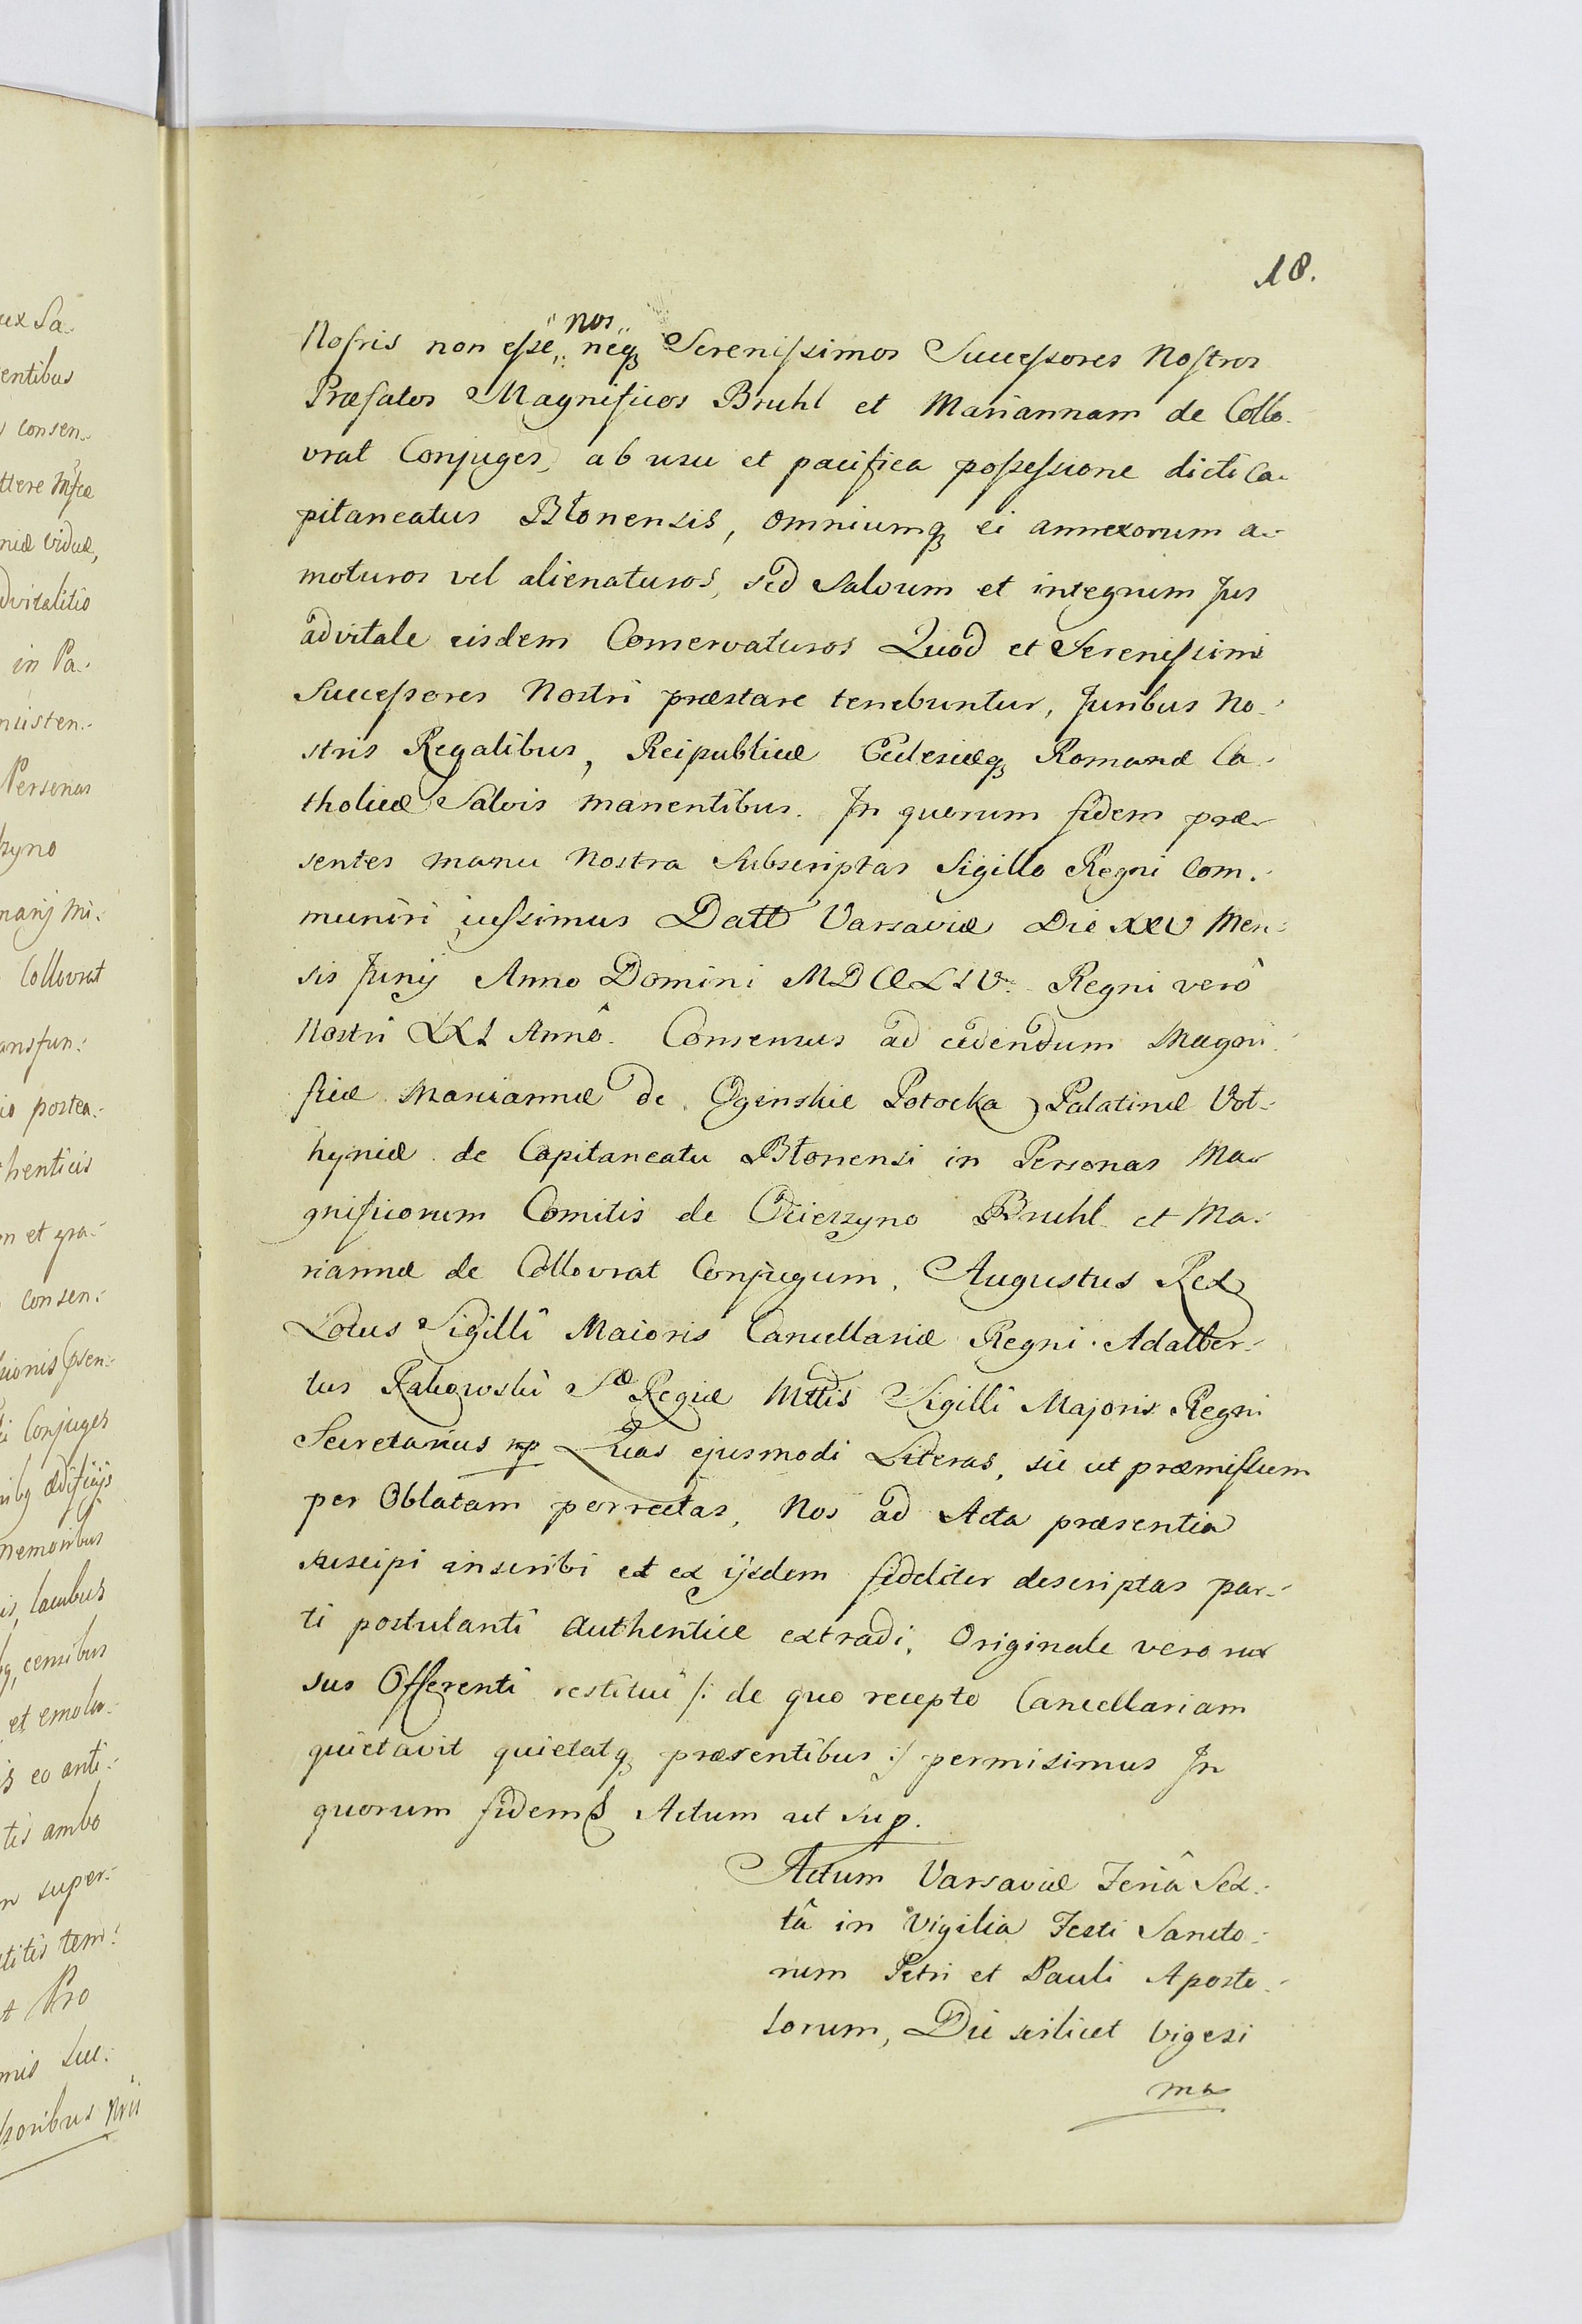 18.
Nostris non esse, nos neq₃ Serenissimos Successores Nostros
Præfatos Magnificos Bruhl et Mariannam de Collo-
vrat Conjuges, ab usu et pacifica possessione dicti Ca-
pitaneatus Błonensis, omniumq₃ ei annexorum a-
moturos vel alienaturos, sed Salvum et integrum Jus
advitale eisdem Conservaturos Quod et Serenissimi
Successores Nostri præstare tenebuntur, Juribus No-
stris Regalibus, Reipublicæ Ecclesiæq₃ Romanæ Ca-
tholicæ Salvis manentibus. In quorum fidem præ-
sentes manu Nostra Subscriptas Sigillo Regni Com-
muniri iussimus Datt Varsaviæ Die XXV Men-
sis Junij Anno Domini MDCCLIV. Regni verô
Nostri XXI Annô. Consensus ad cedendum Magni
ficæ Mariannæ de Oginskie Potocka Palatinæ Vol-
hyniæ de Capitaneatu Błonensi in Personas Ma-
gnificorum Comitis de Ocieszyno Bruhl et Ma-
riannæ de Collovrat Conjugum. Augustus Rex
Locus Sigilli Maioris Cancellariæ Regni. Adalber-
tus Rakowski Sæ Regiæ Mttis Sigilli Majoris Regni
Secretarius mp Quas ejusmodi Literas, sic ut præmissum
per Oblatam porrectas, Nos ad Acta præsentia
suscipi inscribi et ex ijsdem fideliter descriptas par-
ti postulanti authentice extradi, Originale vero rur
sus Offerenti restitui /: de quo recepto Cancellariam
quietavit quietatq₃ præsentibus :/ permisimus In
quorum fidem Actum ut sup.
Actum Varsaviæ Feriâ Sex-
tâ in Vigilia Festi Sancto-
rum Petri et Pauli Aposto-
lorum, Die scilicet Vigesi
ma
ex Sa-
entibus
consen-
ttere Mfcæ
niæ viduæ,
dvitalitio
in Pa-
Personas
szyno
Collovrat
ansfun-
postea-
thenticis
et gra-
consen-
Conjuges
ædificijs
nemoribus
lacubus
censibus
et emolu-
eo anti-
ambo
super-
Pro
Suc-